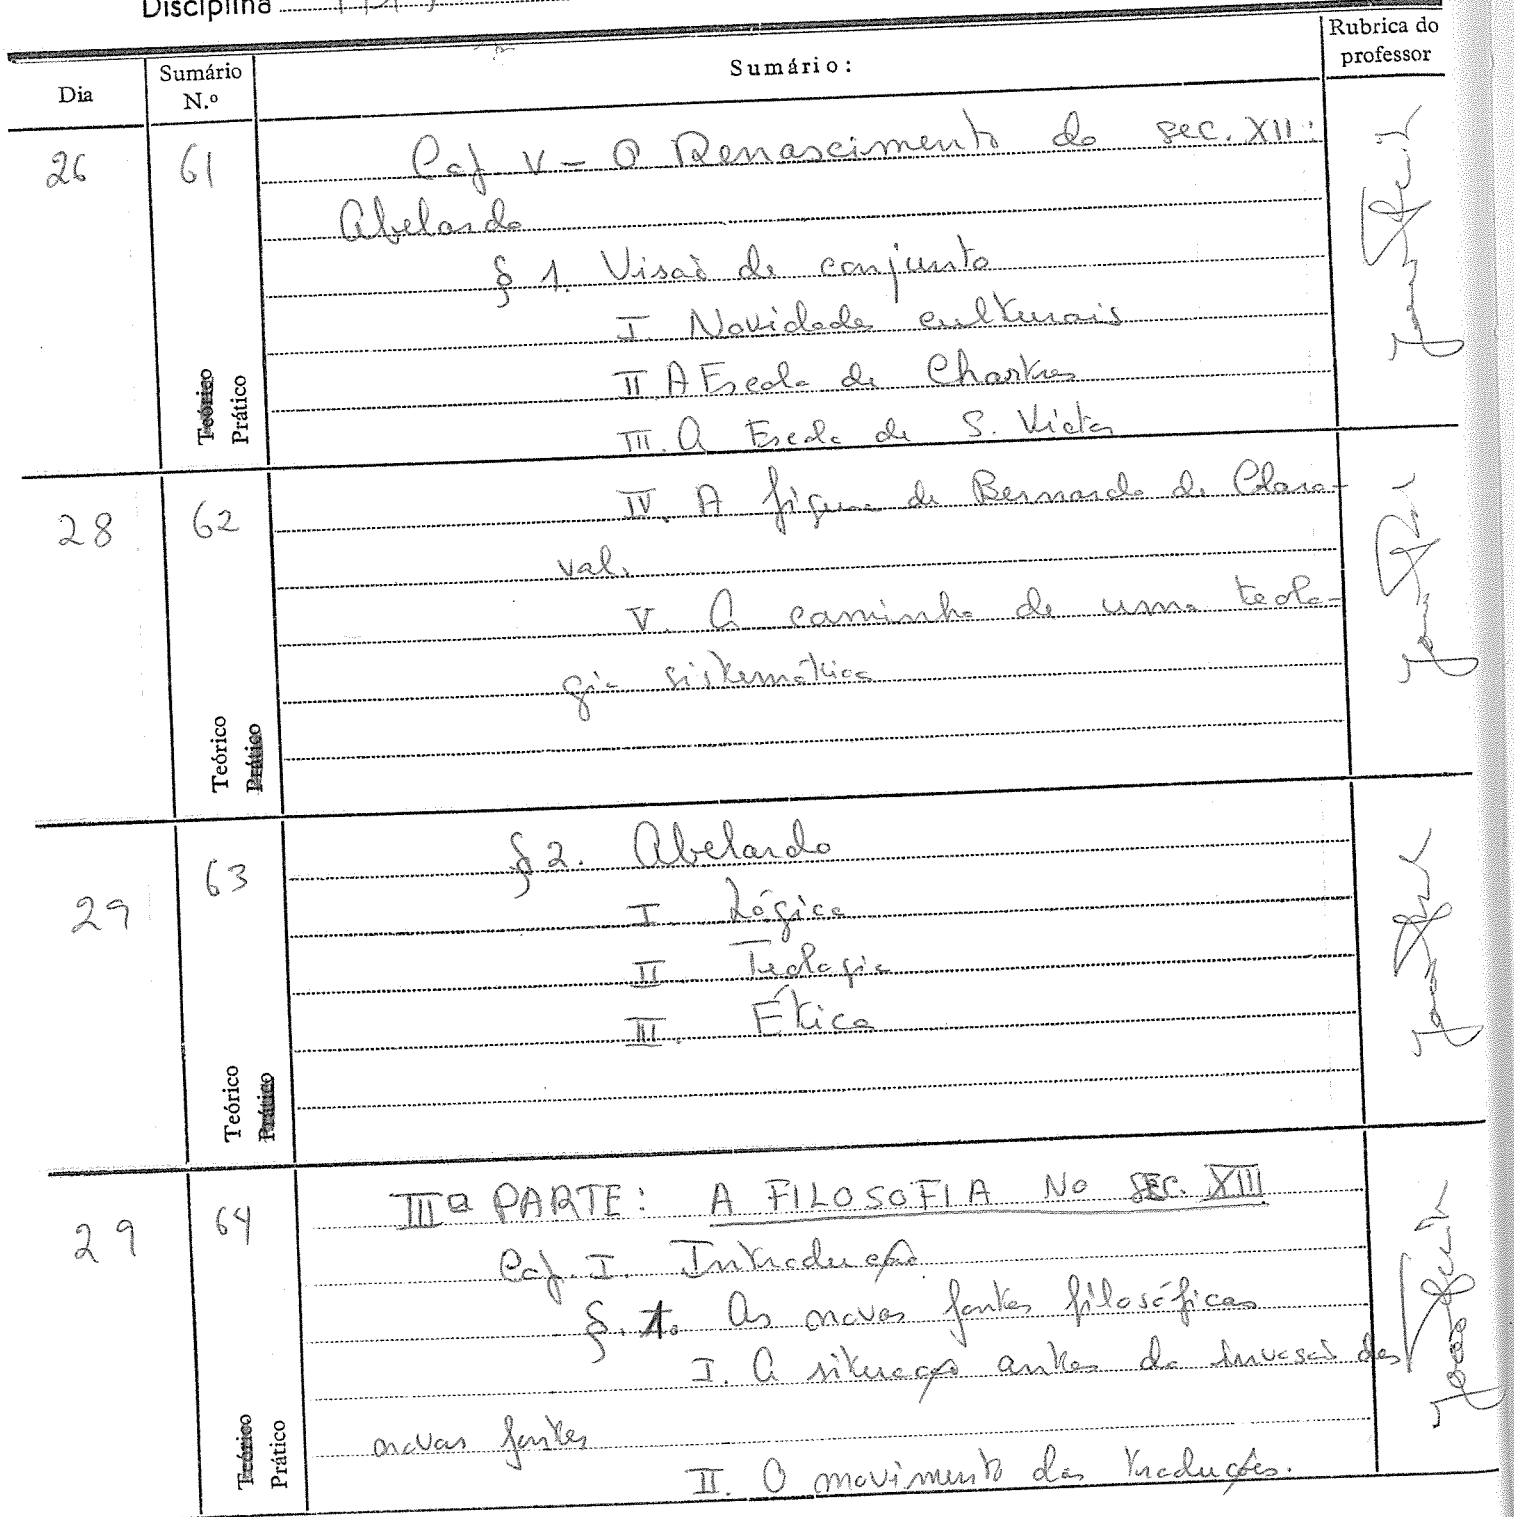 Disciplina
Dia
Sumário N.º
Sumário:
Rubrica do professor
26
61
Teórico
Prático
Cap V - O Renascimento do sec. XII:
Abelardo
§ 1. Visão de conjunto
I. Novidades culturais
II. A Escola de Chartres
III. A Escola de S. Victor
28
62
Teórico
Prático
IV. A figura de Bernardo de Clara-
val.
V. A caminho de uma teolo-
gia sistemática
29
63
Teórico
Prático
§ 2. Abelardo
I Lógica
II Teologia
III. Ética
29
64
Teórico
Prático
IIIª PARTE: A FILOSOFIA NO SEC. XIII
Cap. I. Introdução
§. 1. As novas fontes filosóficas
I. A situação antes da invasão das
novas fontes
II. O movimento das traduções.